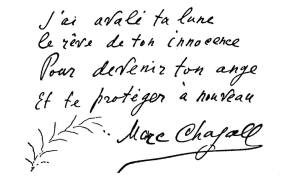 J'ai avalé ta lune
le rêve de ton innocence
Pour devenir ton ange
Et te protéger à nouveau
Marc Chagall